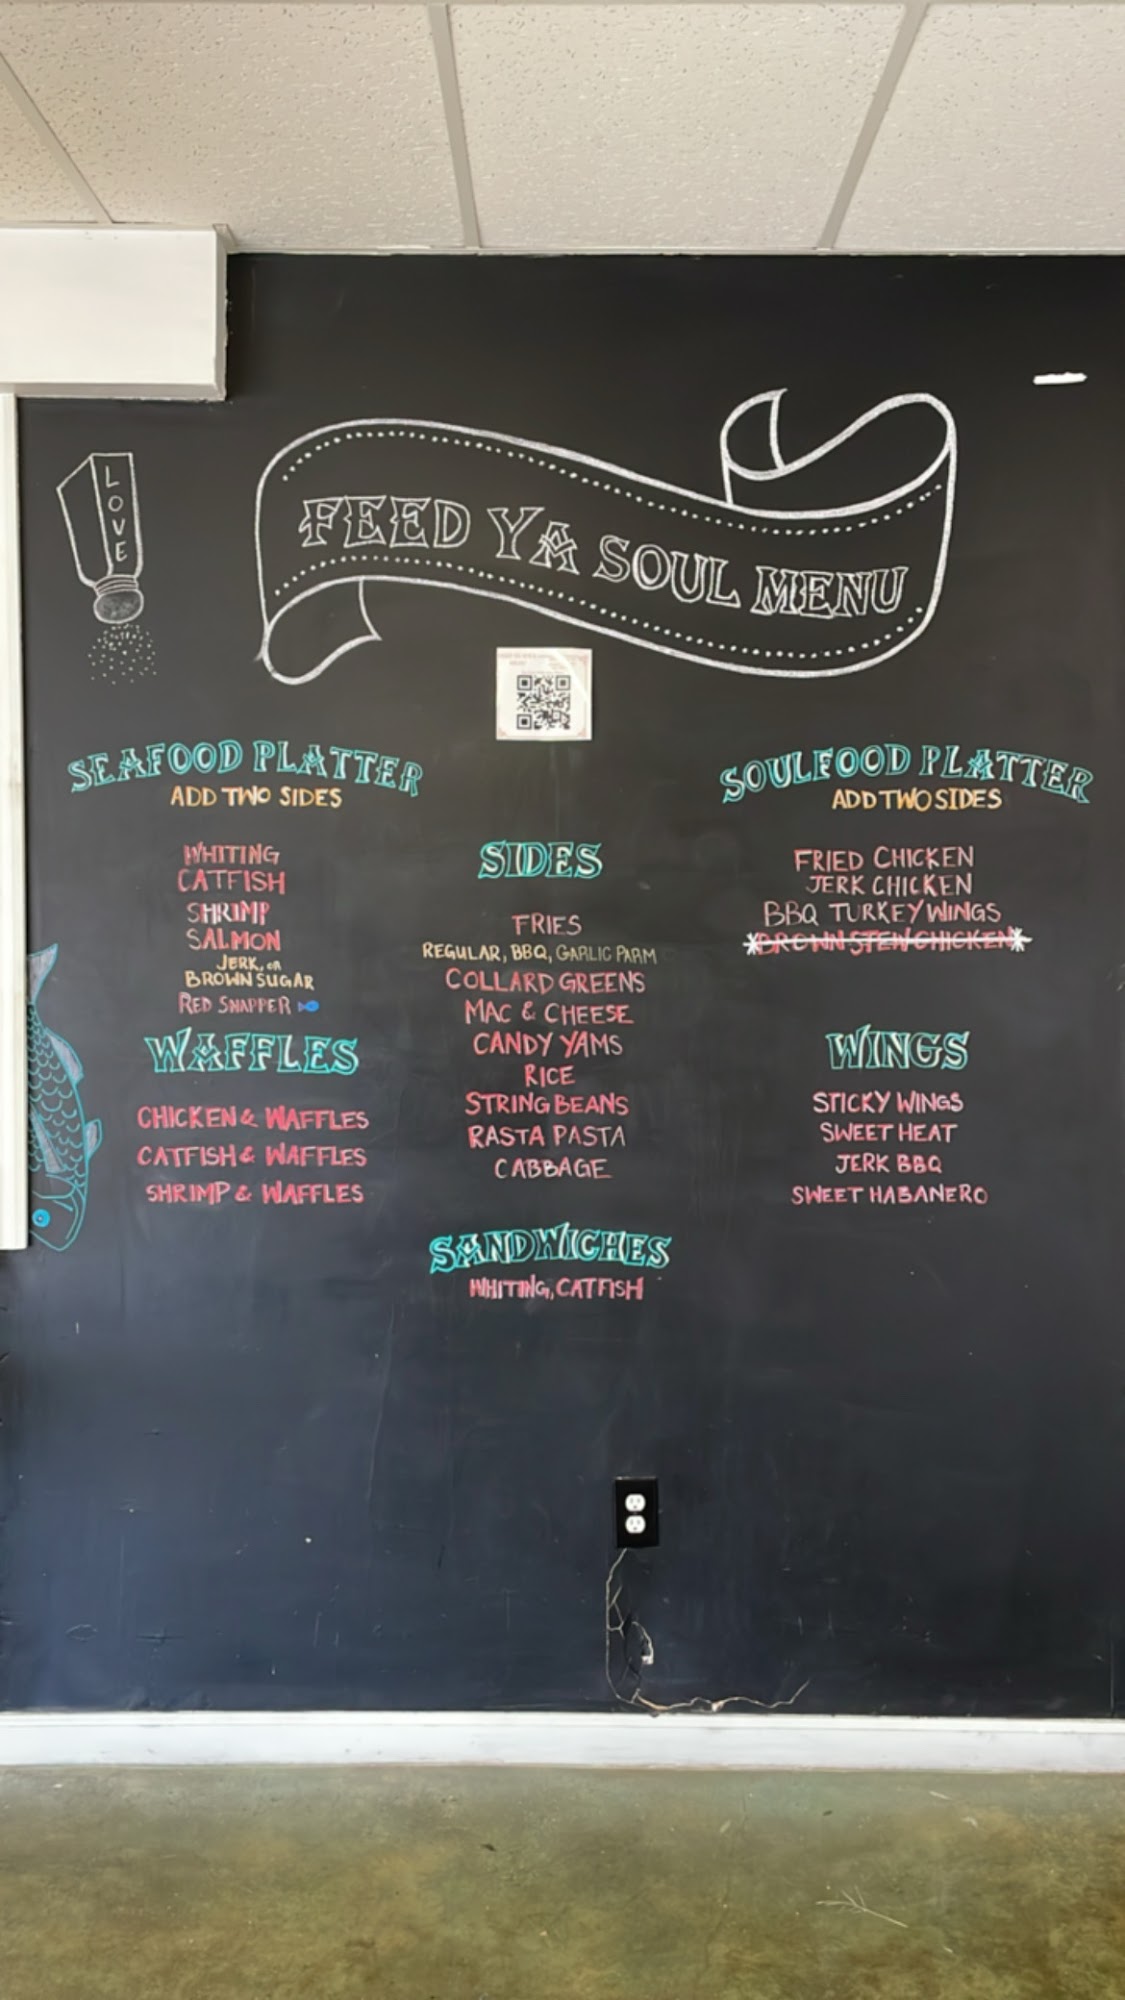 LOVE
FEED YA SOUL MENU
SEAFOOD PLATTER
ADD TWO SIDES
WHITING
CATFISH
SHRIMP
SALMON
JERK, OR
BROWN SUGAR
RED SNAPPER
WAFFLES
CHICKEN & WAFFLES
CATFISH & WAFFLES
SHRIMP & WAFFLES
SIDES
FRIES
REGULAR, BBQ, GARLIC PARM
COLLARD GREENS
MAC & CHEESE
CANDY YAMS
RICE
STRING BEANS
RASTA PASTA
CABBAGE
SANDWICHES
WHITING, CATFISH
SOULFOOD PLATTER
ADD TWO SIDES
FRIED CHICKEN
JERK CHICKEN
BBQ TURKEY WINGS
BROWN STEW CHICKEN
WINGS
STICKY WINGS
SWEET HEAT
JERK BBQ
SWEET HABANERO